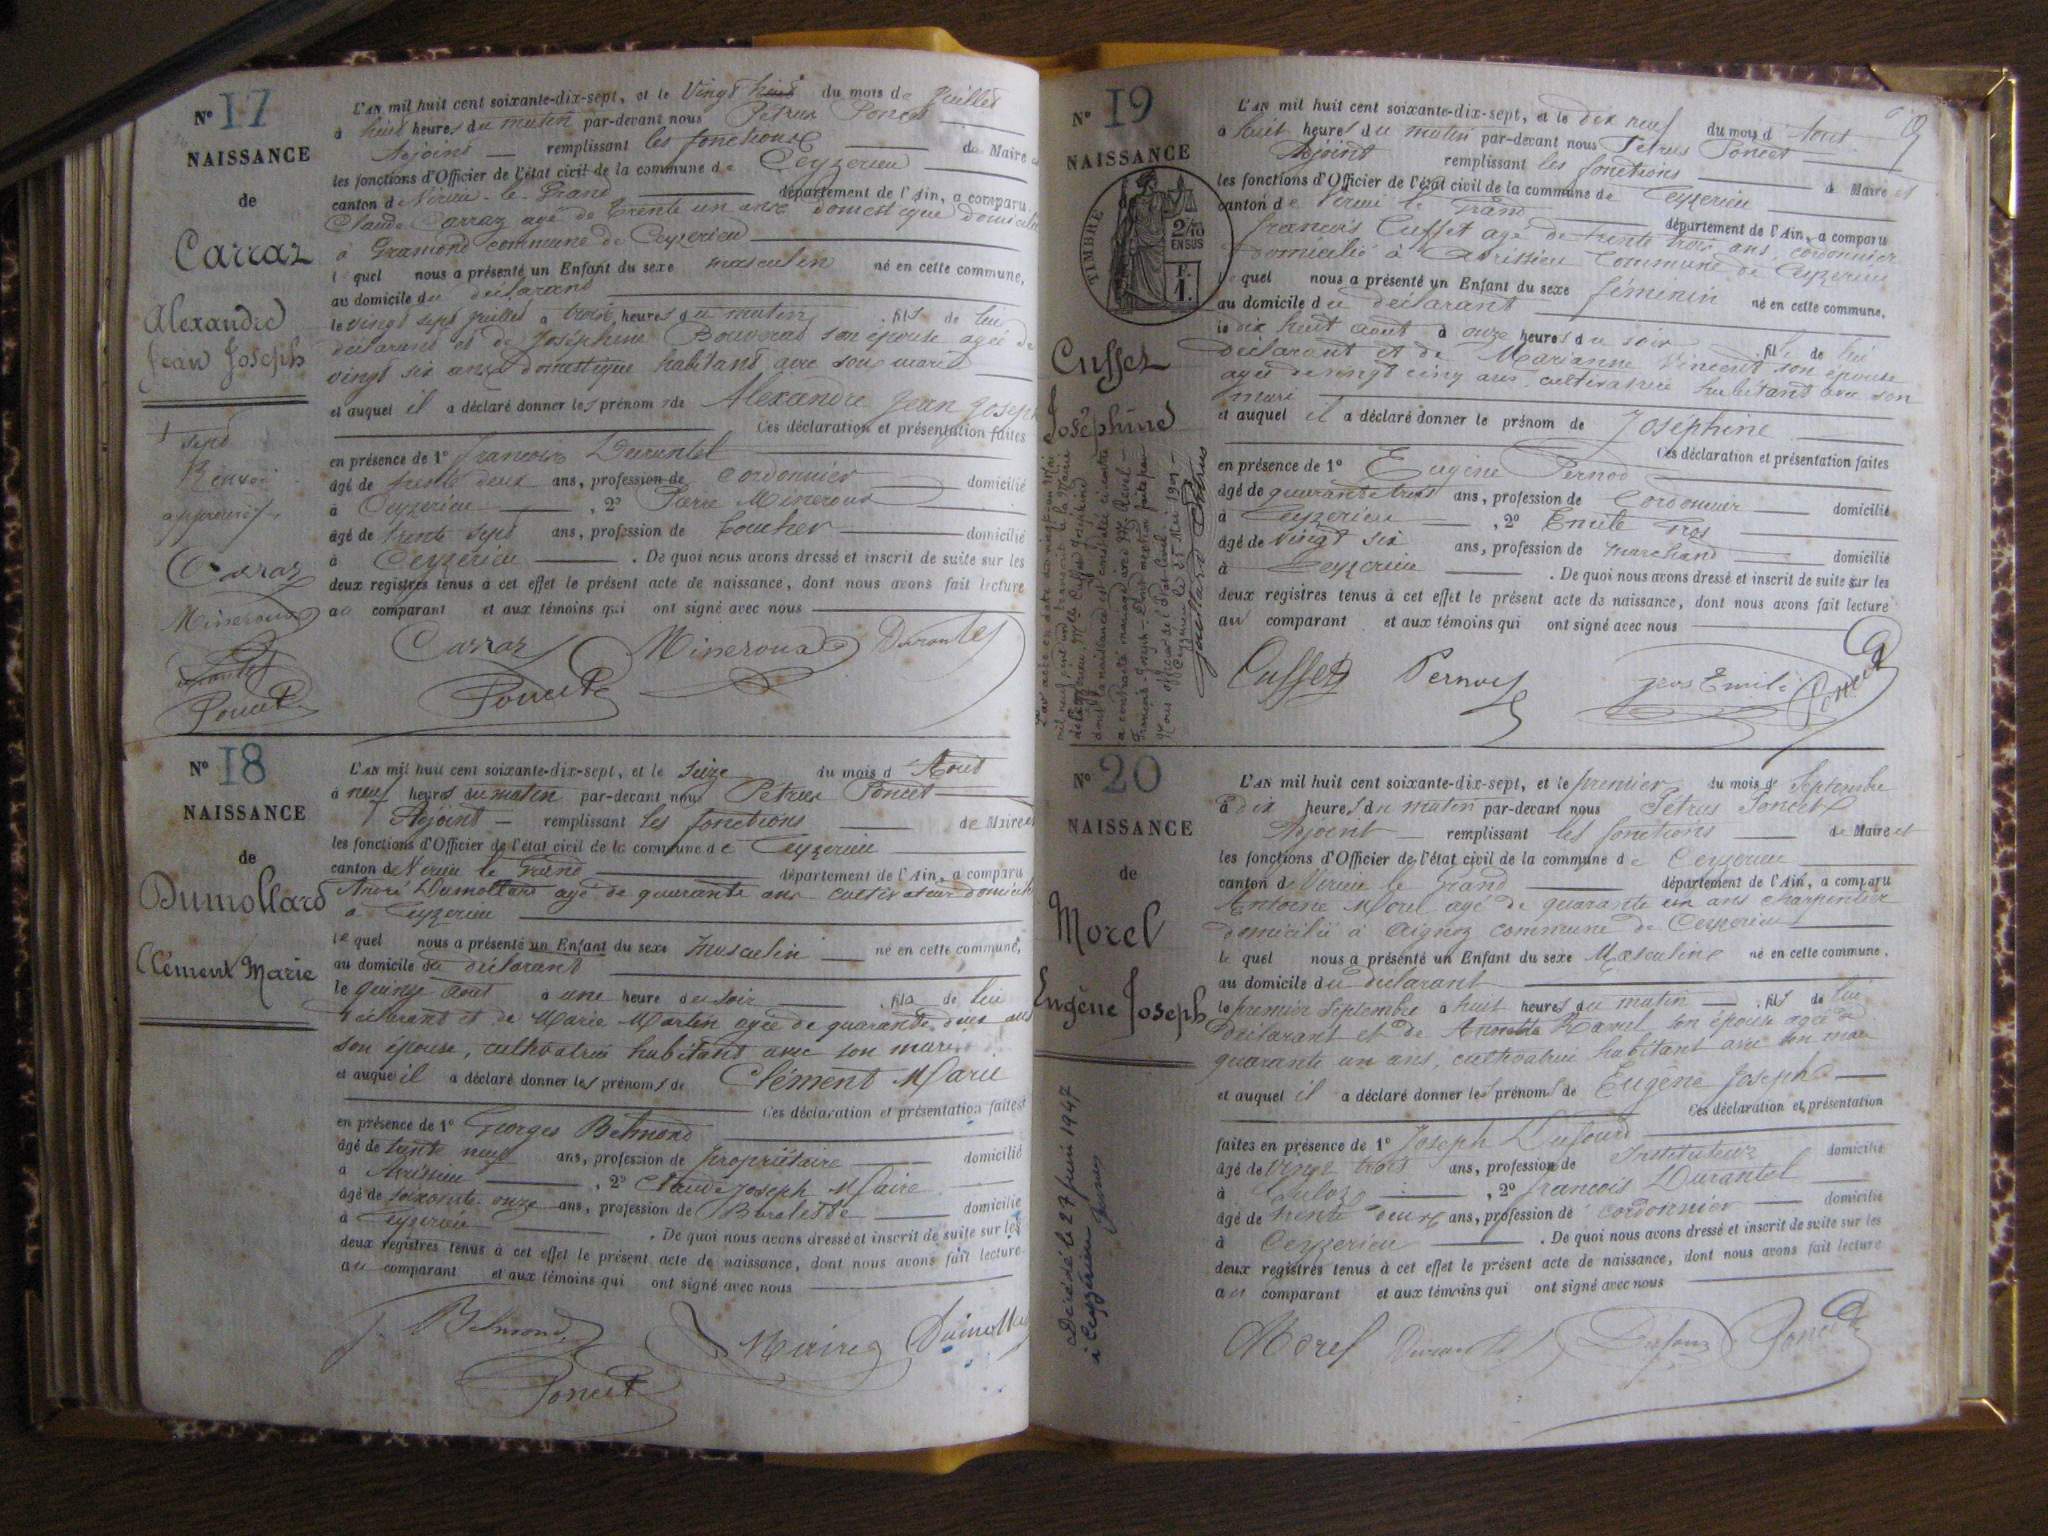 N° 17
NAISSANCE
de
Carraz
Alexandre
Jean Joseph
sept
Renvoi
Carraz
Mineroud
Poncet
L'AN mil huit cent soixante-dix-sept, et le Vingt huit du mois de Juillet
à huit heures du matin par-devant nous Petrus Poncet
Adjoint remplissant les fonctions de Maire et
les fonctions d'Officier de l'état civil de la commune de Ceyzerieu
canton de Virieu-le-Grand département de l'Ain, a comparu
Claude Carraz agé de trente un ans domestique domicilié
à Gramond commune de Ceyzerieu
lequel nous a présenté un Enfant du sexe masculin né en cette commune,
au domicile du déclarant
le vingt sept juillet à trois heures du matin, fils de lui
déclarant et de Joséphine son épouse agée de
vingt six ans domestique habitant avec son mari
et auquel il a déclaré donner les prénoms de Alexandre Jean Joseph
Ces déclaration et présentation faites
en présence de 1° François Durantel
âgé de trente deux ans, profession de cordonnier domicilié
à Ceyzerieu, 2° Pierre Mineroud
âgé de trente sept ans, profession de domicilié
à Ceyzérieu. De quoi nous avons dressé et inscrit de suite sur les
deux registres tenus à cet effet le présent acte de naissance, dont nous avons fait lecture
au comparant et aux témoins qui ont signé avec nous
Carraz Mineroud Durantel
Poncet
N° 18
NAISSANCE
de
Dumollard
Clément Marie
L'AN mil huit cent soixante-dix-sept, et le seize du mois d'Aout
à neuf heures du matin par-devant nous Petrus Poncet
Adjoint remplissant les fonctions de Maire et
les fonctions d'Officier de l'état civil de la commune de Ceyzerieu
canton de Virieu le Grand département de l'Ain, a comparu
André Dumollard agé de quarante ans cultivateur domicilié
à Ceyzerieu
lequel nous a présenté un Enfant du sexe masculin né en cette commune,
au domicile du déclarant
le quinze aout à une heure du soir, fils de lui
déclarant et de Marie Martin agée de quarante deux ans
son épouse, cultivatrice habitant avec son mari
et auquel il a déclaré donner les prénoms de Clément Marie
Ces déclaration et présentation faites
en présence de 1° Georges Belmond
âgé de trente neuf ans, profession de propriétaire domicilié
à Avrissieu, 2° Claude Joseph Maire
âgé de soixante onze ans, profession de Buraliste domicilié
à Ceyzerieu. De quoi nous avons dressé et inscrit de suite sur les
deux registres tenus à cet effet le présent acte de naissance, dont nous avons fait lecture
au comparant et aux témoins qui ont signé avec nous
Belmond Maire Dumollard
Poncet
N° 19
NAISSANCE
TIMBRE
2/10
EN SUS
F.
1.
Cuffet
Joséphine
L'AN mil huit cent soixante-dix-sept, et le dix neuf du mois d'Aout
à huit heures du matin par-devant nous Petrus Poncet
Adjoint remplissant les fonctions de Maire et
les fonctions d'Officier de l'état civil de la commune de Ceyzerieu
canton de Virieu le Grand département de l'Ain, a comparu
François Cuffet agé de trente trois ans, cordonnier
domicilié à Avrissieu commune de Ceyzerieu
lequel nous a présenté un Enfant du sexe féminin né en cette commune,
au domicile du déclarant
le dix huit aout à onze heures du soir, fille de lui
déclarant et de Marianne Vincent son épouse
agée de vingt cinq ans cultivatrice habitant avec son
mari
et auquel il a déclaré donner le prénom de Joséphine
Ces déclaration et présentation faites
en présence de 1° Eugène Pernod
âgé de quarante trois ans, profession de Cordonnier domicilié
à Ceyzerieu, 2° Emile Gros
âgé de vingt six ans, profession de marchand domicilié
à Ceyzerieu. De quoi nous avons dressé et inscrit de suite sur les
deux registres tenus à cet effet le présent acte de naissance, dont nous avons fait lecture
au comparant et aux témoins qui ont signé avec nous
Cuffet Pernod Gros Emile Poncet
N° 20
NAISSANCE
de
Morel
Eugène Joseph
Décédé le 27 juin 1947
à Ceyzérieu
L'AN mil huit cent soixante-dix-sept, et le premier du mois de Septembre
à dix heures du matin par-devant nous Petrus Poncet
Adjoint remplissant les fonctions de Maire et
les fonctions d'Officier de l'état civil de la commune de Ceyzerieu
canton de Virieu le Grand département de l'Ain, a comparu
Antoine Morel agé de quarante un ans charpentier
domicilié à Aignoz commune de Ceyzerieu
lequel nous a présenté un Enfant du sexe Masculin né en cette commune,
au domicile du déclarant
le premier Septembre à huit heures du matin, fils de lui
déclarant et de Ravel son épouse agée de
quarante un ans, cultivatrice habitant avec son mari
et auquel il a déclaré donner les prénoms de Eugène Joseph
Ces déclaration et présentation
faites en présence de 1° Joseph Dufour
âgé de vingt trois ans, profession de Instituteur domicilié
à Culoz, 2° François Durantel
âgé de trente deux ans, profession de cordonnier domicilié
à Ceyzerieu. De quoi nous avons dressé et inscrit de suite sur les
deux registres tenus à cet effet le présent acte de naissance, dont nous avons fait lecture
au comparant et aux témoins qui ont signé avec nous
Morel Durantel Dufour Poncet